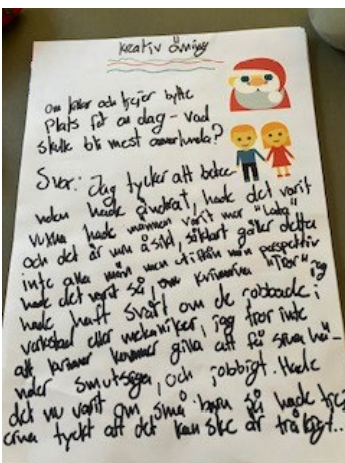 Kreativ övning
Om killar och tjejer bytte
plats för en dag - vad
skulle bli mest annorlunda?
Svar: Jag tycker att betee-
nden hade ändrat, hade det varit
vuxna hade männen varit mer "Lata"
och det är min åsikt, såklart gäller detta
inte alla män men utifrån min perspektiv
hade det varit så, om kvinnorna "Tror" jag
hade haft svårt om de jobbade i
verkstad eller mekaniker, jag tror inte
att kvinnor kommer gilla att få sina hä-
nder smutsiga, och jobbigt. Hade
det nu varit om små barn så hade tjej
erna tyckt att det kan ske är tråkigt..